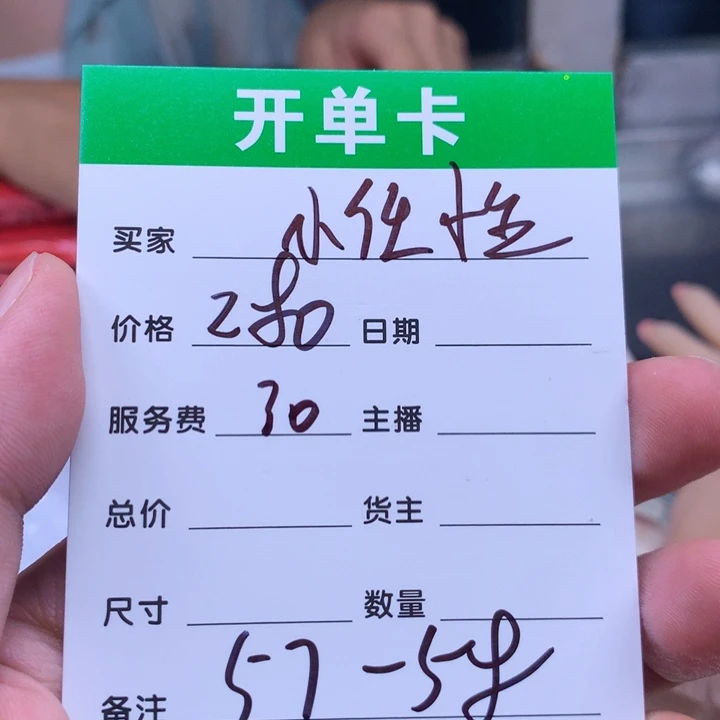 开单卡
买家 小任性
价格 280 日期
服务费 30 主播
总价 货主
尺寸 数量
备注 57-58